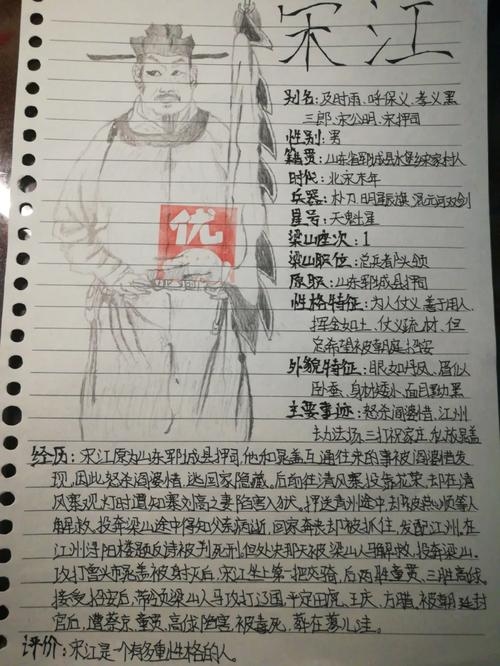 宋江
别名:及时雨、呼保义、孝义黑
三郎、宋公明、宋押司
性别:男
籍贯:山东省郓城县水堡乡宋家村人
时代:北宋末年
兵器:朴刀 明星辰旗 混元河双剑
星号:天魁星
梁山座次:1
梁山职位:总兵都头领
原职:山东郓城县押司
性格特征:为人仗义 善于用人、
挥金如土、仗义疏财、但
总希望被朝庭招安
外貌特征:眼如丹凤、眉似
卧蚕、身材矮小、面目黝黑
主要事迹:怒杀阎婆惜、江州
劫法场、三打祝家庄、私放晁盖
优
经历:宋江原为山东郓城县押司,他和晁盖互通往来的事被阎婆惜发
现,因此怒杀阎婆惜,逃回家隐藏,后前往清风寨投奔花荣,却在清
风寨观灯时遭知寨刘高之妻陷害入狱。押送青州途中却被燕顺等人
解救。投奔梁山途中得知父亲病逝,回家奔丧却被抓住,发配江州。在
江州浔阳楼题反诗被判死刑但处决那天被梁山人马解救,投奔梁山。
攻打曾头市晁盖被射天后,宋江坐上第一把交骑,后两胜童贯,三胜高俅。
接受招安后,带领梁山人马攻打辽国,平定田虎、王庆、方腊,被朝廷封
官后,遭蔡京、童贯、高俅陷害,被毒死,葬在蓼儿洼。
评价:宋江是一个有多重性格的人。